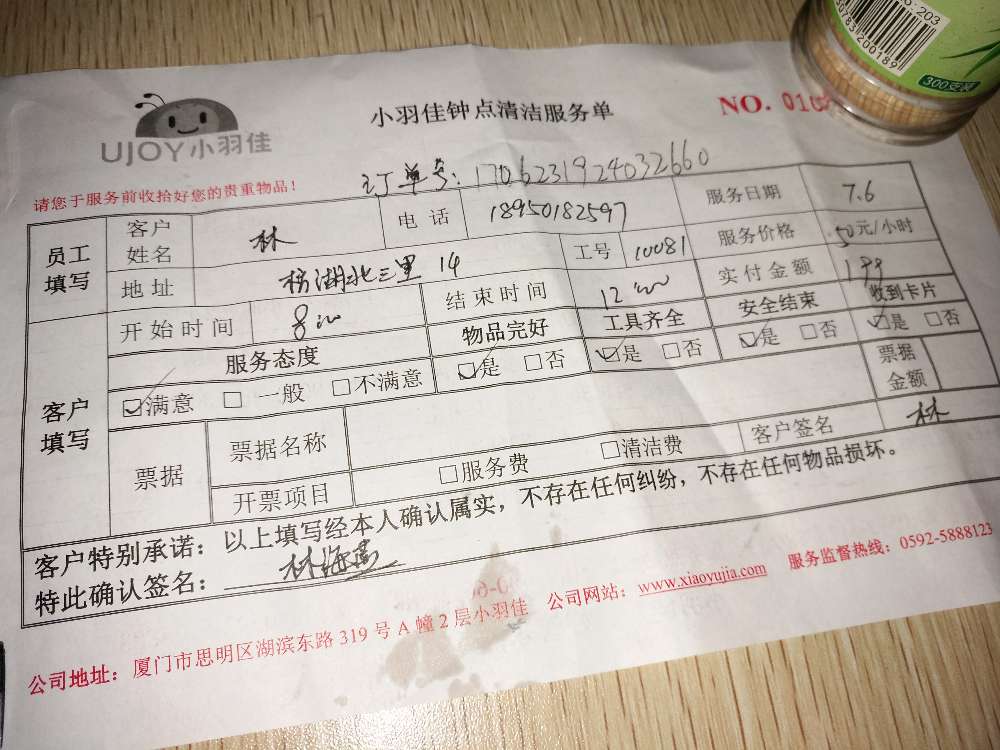 203
6783 200189
300支装
UJOY小羽佳
小羽佳钟点清洁服务单
NO. 010
请您于服务前收拾好您的贵重物品！
订单号：1706231924032660
员工填写
客户姓名 林 电话 18950182597 服务日期 7.6
地址 湖北三里 14 工号 10081 服务价格 50元/小时
客户填写
开始时间 8:00 结束时间 12:00 实付金额 199
服务态度 物品完好 工具齐全 安全结束 收到卡片
☑满意 □一般 □不满意 ☑是 □否 ☑是 □否 ☑是 □否 ☑是 □否
票据 票据名称 票据金额
开票项目 □服务费 □清洁费 客户签名 林
客户特别承诺：以上填写经本人确认属实，不存在任何纠纷，不存在任何物品损坏。
特此确认签名：林海
公司地址：厦门市思明区湖滨东路 319 号 A 幢 2 层小羽佳 公司网站：www.xiaoyujia.com 服务监督热线：0592-5888123